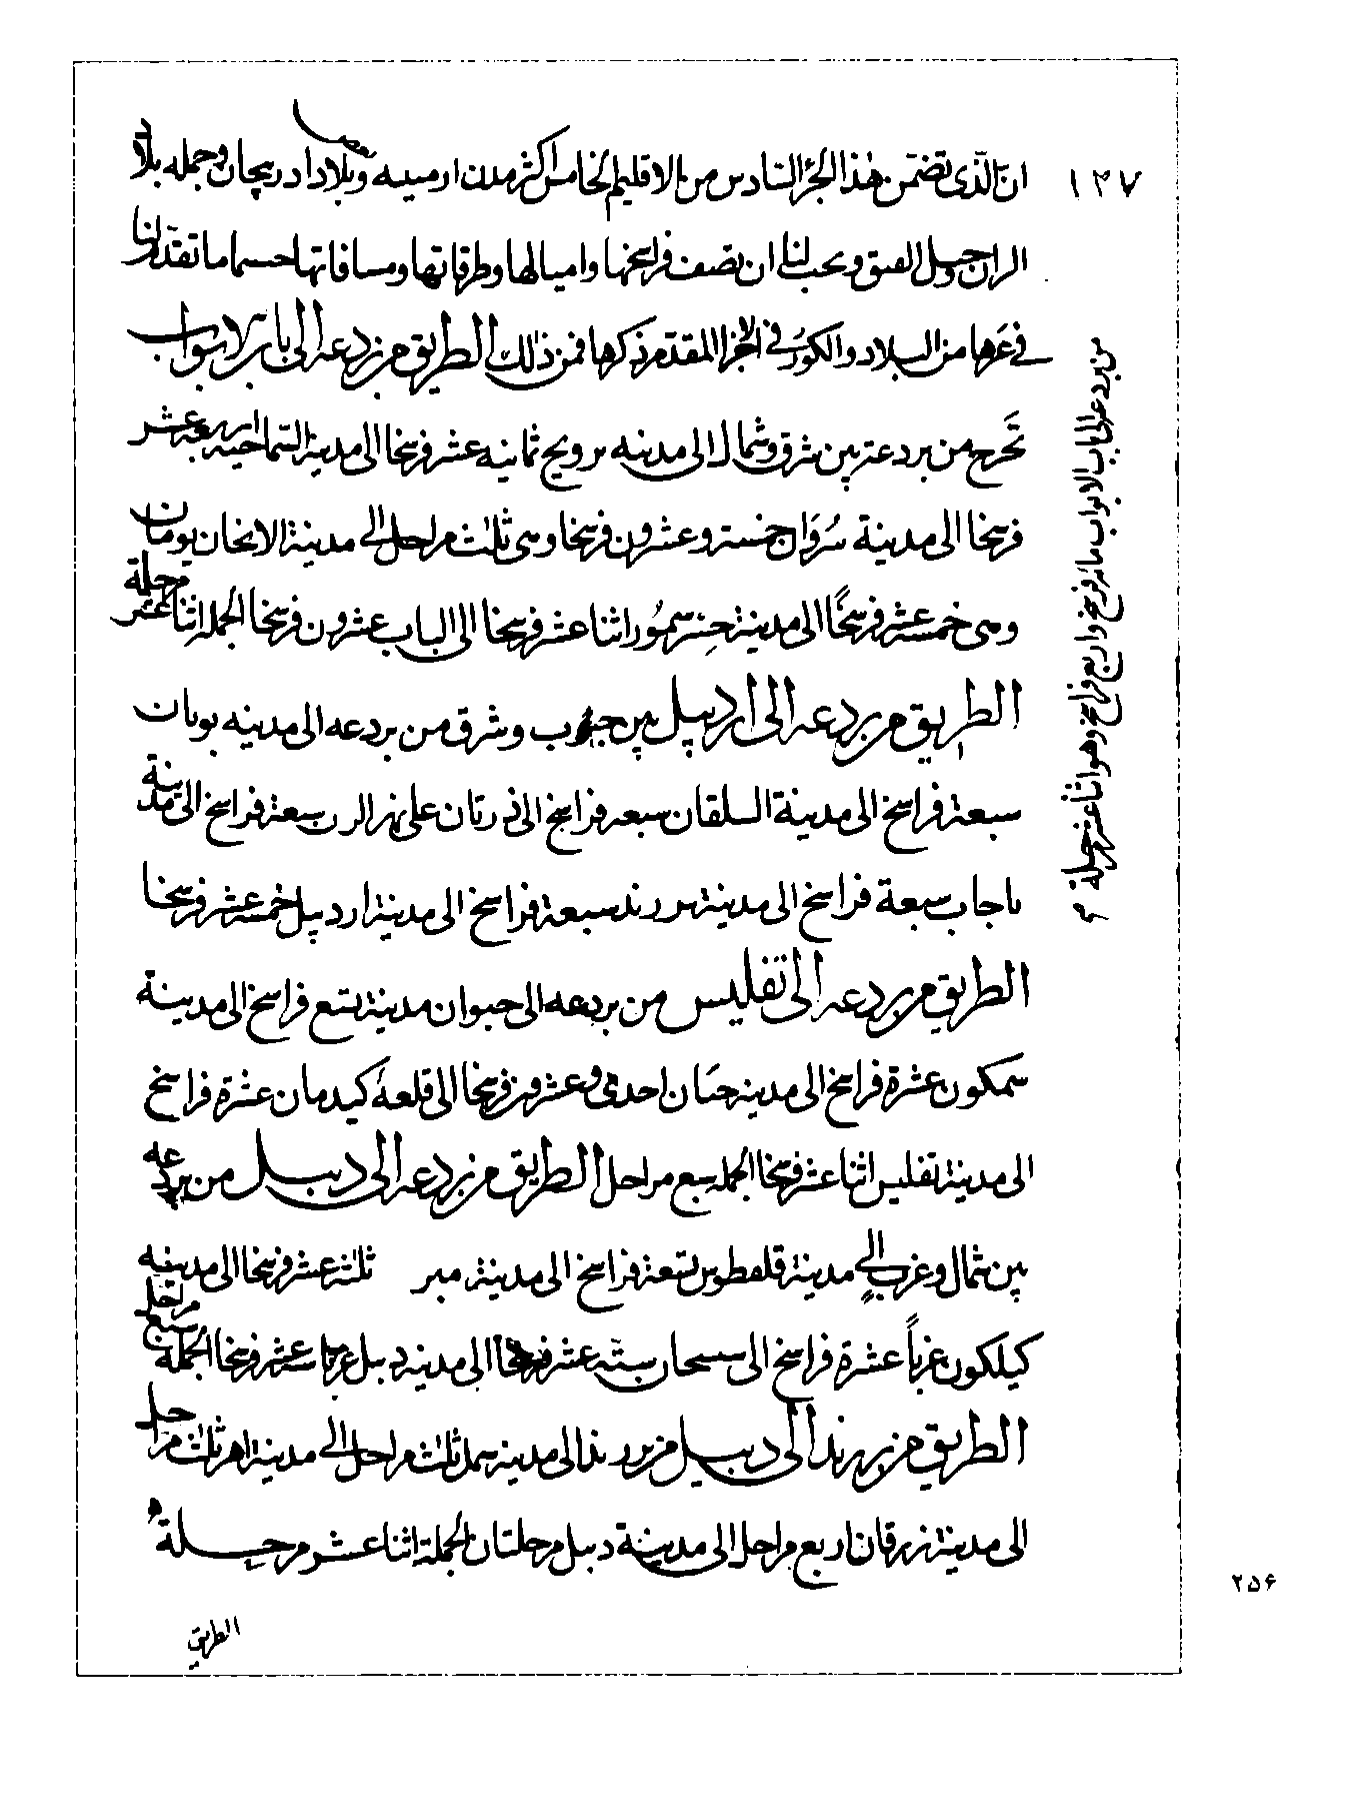 ١٣٧
ان الذى تضمن هذا الجزء السادس من الاقليم الخامس اكثر مدن ارمينيه وبعض بلاد ادربيجان وجمله بلاد
الران وجبل القبق ويجب لنا ان نصف فراسخها واميالها وطرقاتها ومسافاتها حسبما ما تقدم لنا
فى غيرها من البلاد والكور فى الاجزا المقدم ذكرها فمن ذلك الطريق من بردعه الى باب الابواب
تخرج من بردعة بين شرق وشمال الى مدينه برديج ثمانيه عشر فرسخا الى مدينة الشماخيه اربعة عشر
فرسخا الى مدينة شروان خمسة وعشرون فرسخا وهى ثلث مراحل الى مدينة الابخان يومان
وهى خمسة عشر فرسخا الى مدينة جسر سمور اثنا عشر فرسخا الى الباب عشرون فرسخا الجملة اثنا عشر مرحلة
الطريق من بردعه الى اردبيل بين جنوب وشرق من بردعه الى مدينه يونان
سبعة فراسخ الى مدينة البيلقان سبعه فراسخ الى ورثان على نهر الرس سبعة فراسخ الى مدينة
باجاب سبعة فراسخ الى مدينة برزند سبعة فراسخ الى مدينة اردبيل خمسة عشر فرسخا
الطريق من بردعه الى تفليس من بردعه الى جيوان مدينة تسع فراسخ الى مدينة
سمكون عشرة فراسخ الى مدينة حنان احدى وعشرون فرسخا الى قلعة كيدمان عشرة فراسخ
الى مدينة تفليس اثنا عشر فرسخا الجمله سبع مراحل الطريق من بردعه الى دبيل من بردعه
بين شمال وغرب الى مدينة قلقطوس تسعة فراسخ الى مدينة ميبر ثلثة عشر فرسخا الى مدينه
كيلكون غربا عشرة فراسخ الى سيسجان ستة عشر فرسخا الى مدينه دبيل عشر فرسخا الجملة سبع مراحل
الطريق من برزند الى دبيل من برزند الى مدينة ثلث مراحل الى مدينة اهر ثلاث مراحل
الى مدينة زرقان اربع مراحل الى مدينة دبيل مرحلتان الجملة اثنا عشر مرحلة
الطريق
من بردعه الى باب الابواب مائة فرسخ واربع فراسخ وهو اثنا عشر مرحلة
٢٥۶